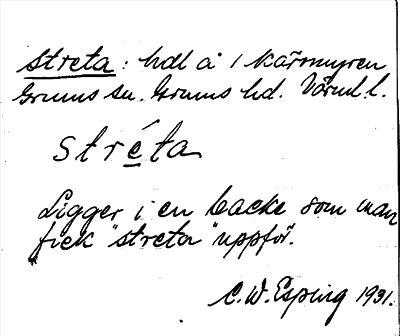 Streta: hdl å i Kärrmyren
Grums sn. Grums hd. Värml l.
stréta
Ligger i en backe som man
fick "streta" uppför.
C.W. Esping 1931.